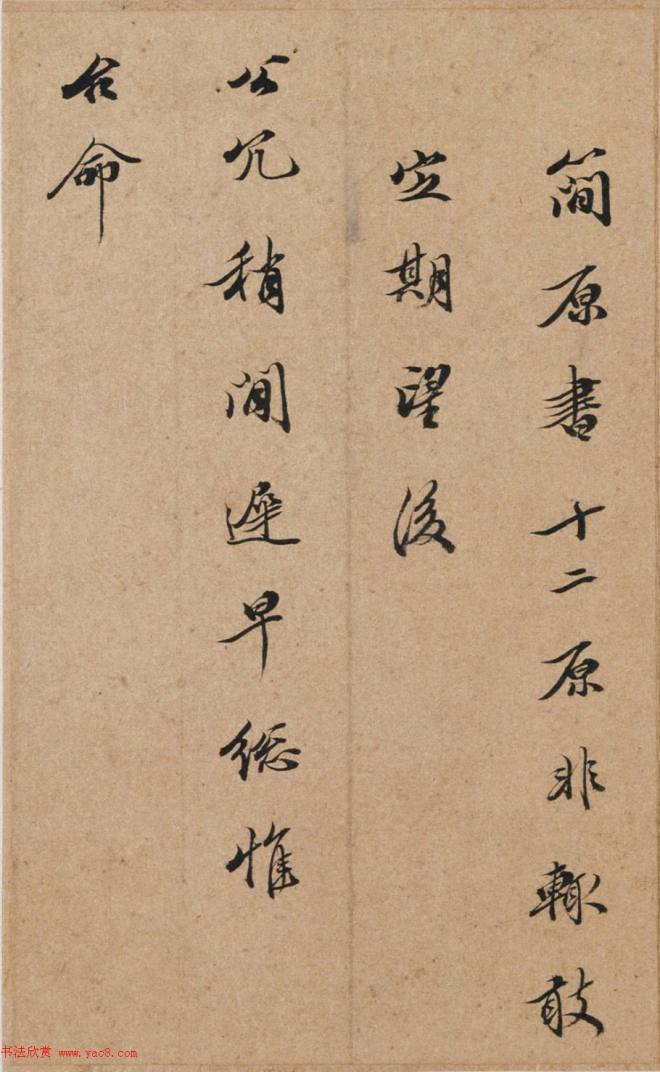 簡原書十二原非輒敢
定期望後
公冗稍閒遲早総惟
台命
书法欣赏 www.yac8.com